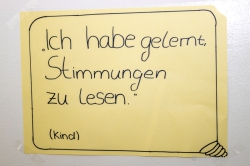 „Ich habe gelernt,
Stimmungen
zu lesen."
(Kind)